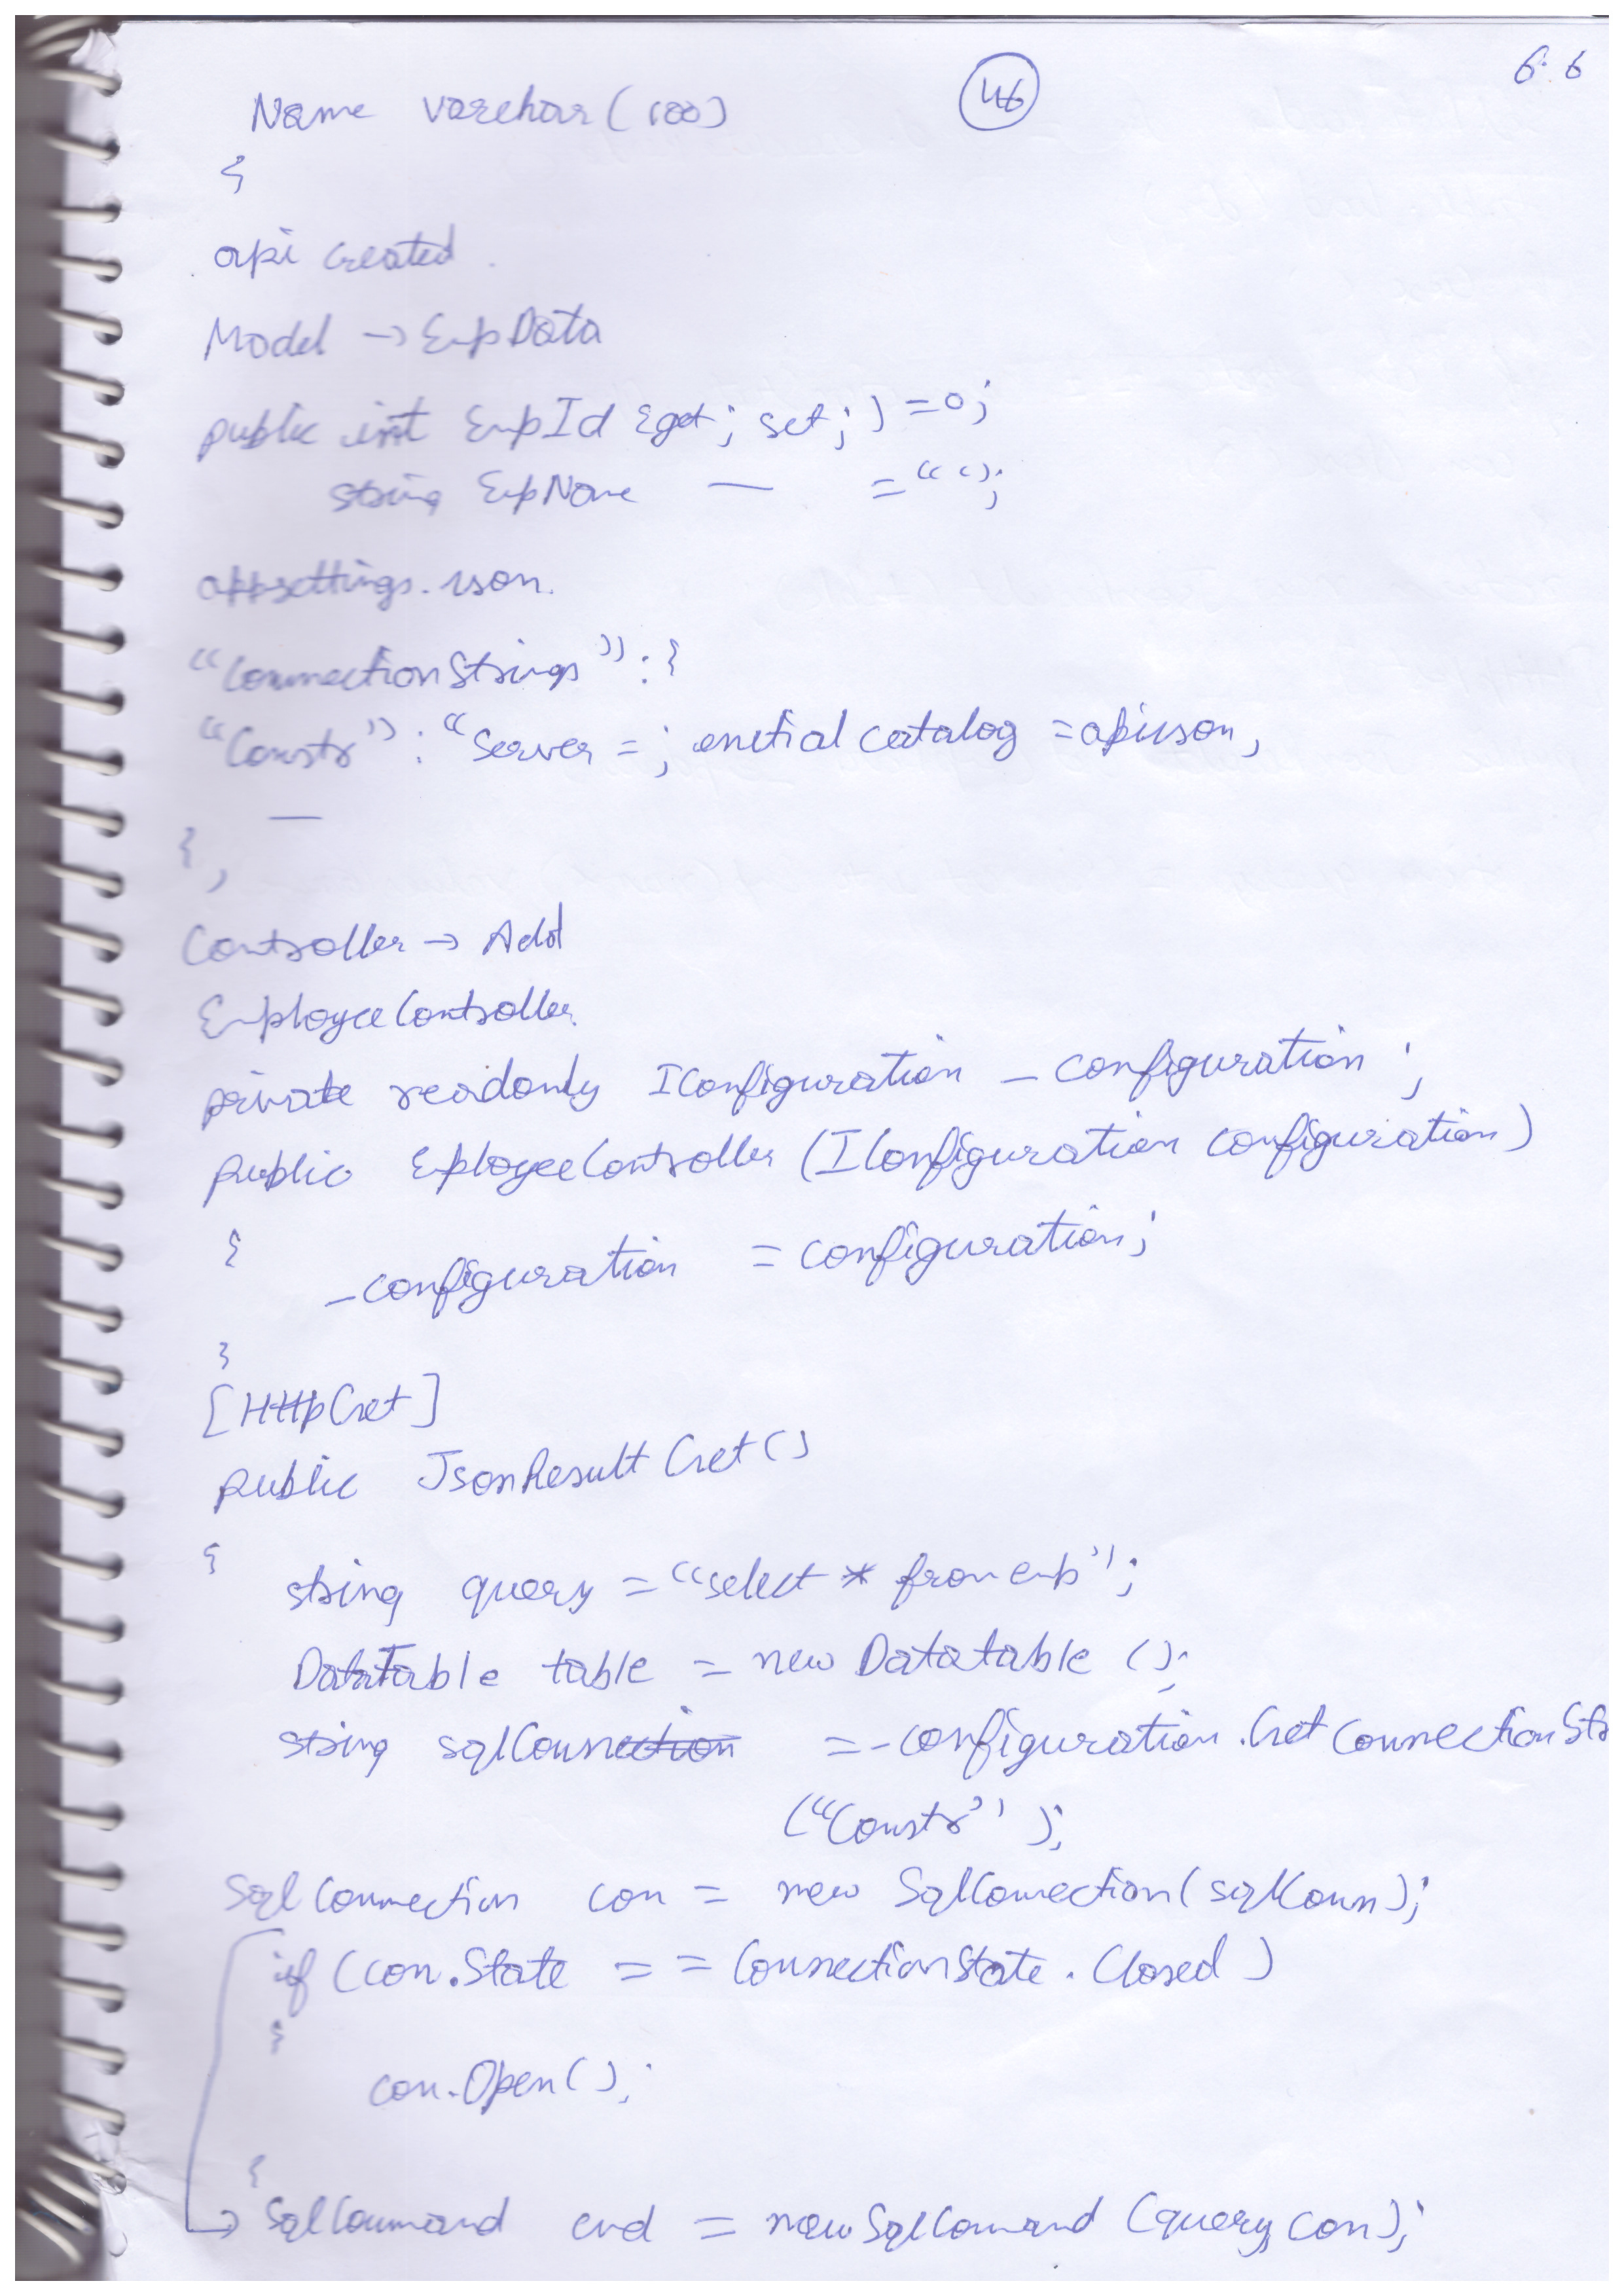 46
6.6
Name varchar(100)
{
api created.
Model → EmpData
public int EmpId {get; set;} =0;
string EmpName — ="";
appsettings.json.
"ConnectionStrings":{
"Constr": "Server=; initial catalog =apijson,
—
},
Controller → Add
EmployeeController
private readonly IConfiguration _configuration;
public EployeeController (IConfiguration configuration)
{
_configuration = configuration;
}
[HttpGet]
public JsonResult Get()
{
string query = "select * from emp";
DataTable table = new Datatable ();
string sqlConnection =_configuration.GetConnectionStr
("Constr");
SqlConnection con = new SqlConnection(sqlConn);
if (con.State == ConnectionState.Closed)
{
con.Open();
}
→ SqlCommand cmd = new SqlCommand (query, con);